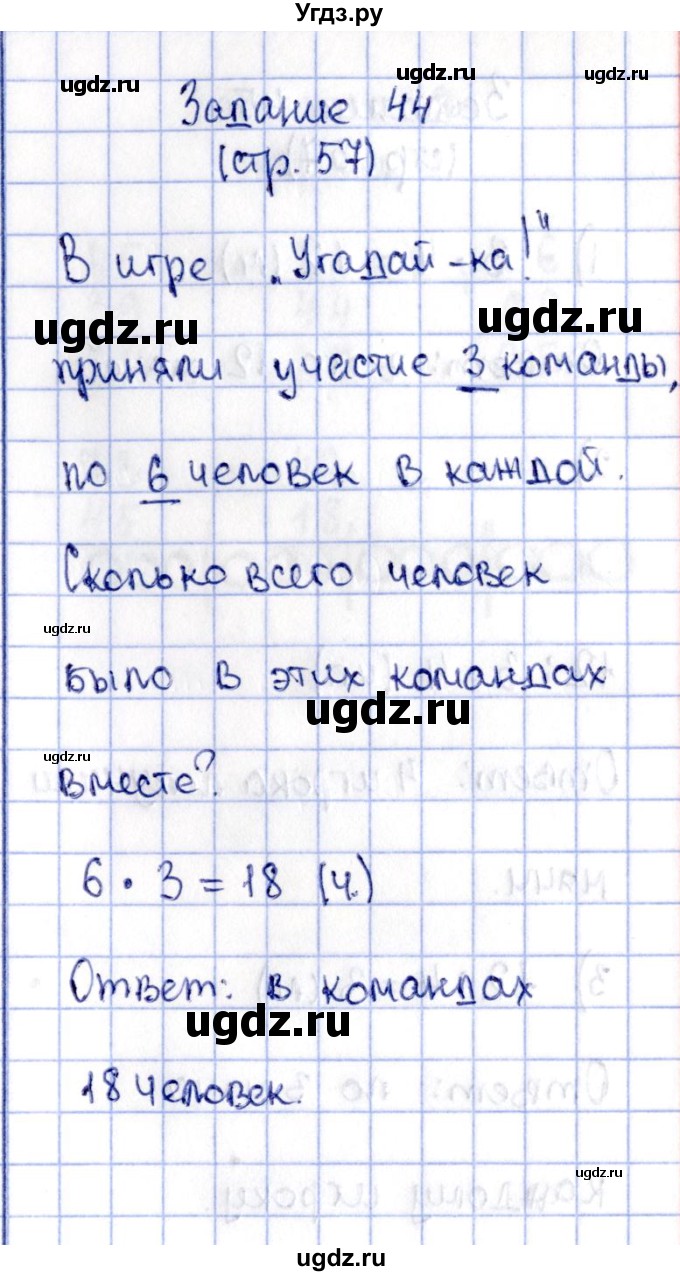 Угдз.ру
ugdz.ru ugdz.ru ugdz.ru
Задание 44
(стр. 57)
В игре „Угадай-ка!"
ugdz.ru ugdz.ru
приняли участие 3 команды,
по 6 человек в каждой.
Сколько всего человек
ugdz.ru
было в этих командах
ugdz.ru
ugdz.ru
вместе?
6 · 3 = 18 (ч.)
Ответ: в командах
ugdz.ru
18 человек.
ugdz.ru
ugdz.ru